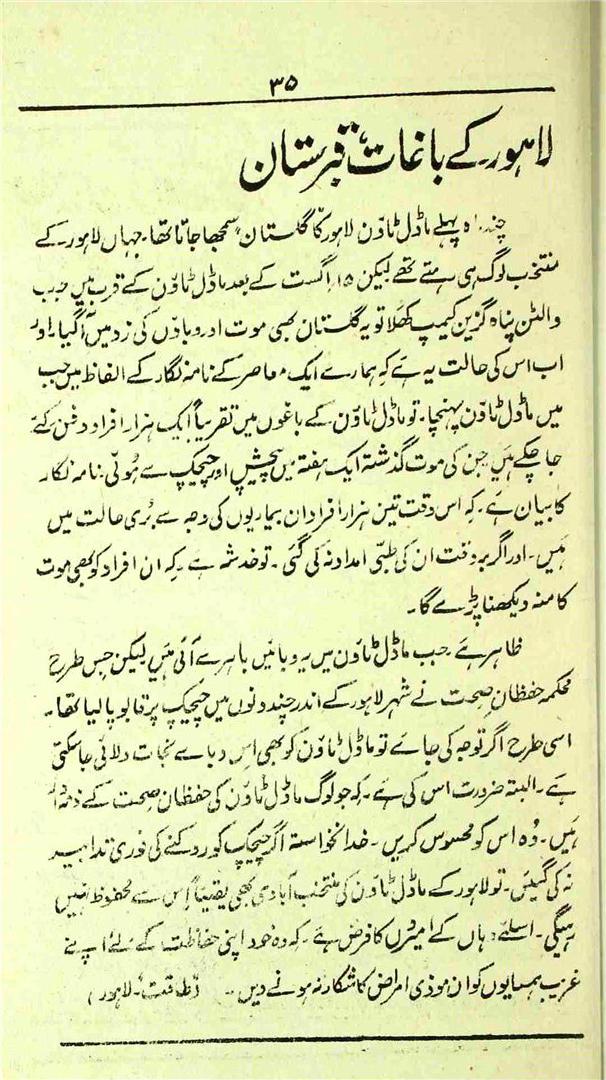 ۳۵
لاہور کے باغات، قبرستان
چند ماہ پہلے ماڈل ٹاؤن لاہور کا گلستان سمجھا جاتا تھا۔ جہاں لاہور کے
منتخب لوگ ہی رہتے تھے لیکن ۱۵ اگست کے بعد ماڈل ٹاؤن کے قرب میں جب
والٹن پناہ گزین کیمپ کھُلا تو یہ گلستان بھی موت اور وباؤں کی زد میں آگیا۔ اور
اب اس کی حالت یہ ہے کہ ہمارے ایک معاصر کے نامہ نگار کے الفاظ میں جب
میں ماڈل ٹاؤن پہنچا۔ تو ماڈل ٹاؤن کے باغوں میں تقریباً ایک ہزار افراد دفن کئے
جا چکے ہیں جن کی موت گذشتہ ایک ہفتہ میں پیچش اور چیچک سے ہوئی۔ نامہ نگار
کا بیان ہے۔ کہ اس وقت تین ہزار افراد ان بیماریوں کی وجہ سے بُری حالت میں
ہیں۔ اور اگر بر وقت ان کی طبی امداد نہ کی گئی۔ تو خدشہ ہے۔ کہ ان افراد کو بھی موت
کا منہ دیکھنا پڑے گا۔
ظاہر ہے۔ جب ماڈل ٹاؤن میں یہ وبائیں باہر سے آئی ہیں لیکن جس طرح
محکمہ حفظانِ صحت نے شہر لاہور کے اندر چند دنوں میں چیچک پر قابو پا لیا تھا۔
اسی طرح اگر توجہ کی جائے تو ماڈل ٹاؤن کو بھی اس وبا سے نجات دلائی جا سکتی
ہے۔ البتہ ضرورت اس کی ہے۔ کہ جو لوگ ماڈل ٹاؤن کی حفظانِ صحت کے ذمہ دار
ہیں۔ وُہ اس کو محسوس کریں۔ خدانخواستہ اگر چیچک کو روکنے کی فوری تدابیر
نہ کی گئیں۔ تو لاہور کے ماڈل ٹاؤن کی منتخب آبادی بھی یقیناً اِس سے محفوظ نہیں
رہیگی۔ اسلئے وہاں کے امیروں کا فرض ہے۔ کہ وہ خود اپنی حفاظت کے لئے اپنے
غریب ہمسایوں کو ان موذی امراض کا شکار نہ ہونے دیں۔ (طاقت۔ لاہور)